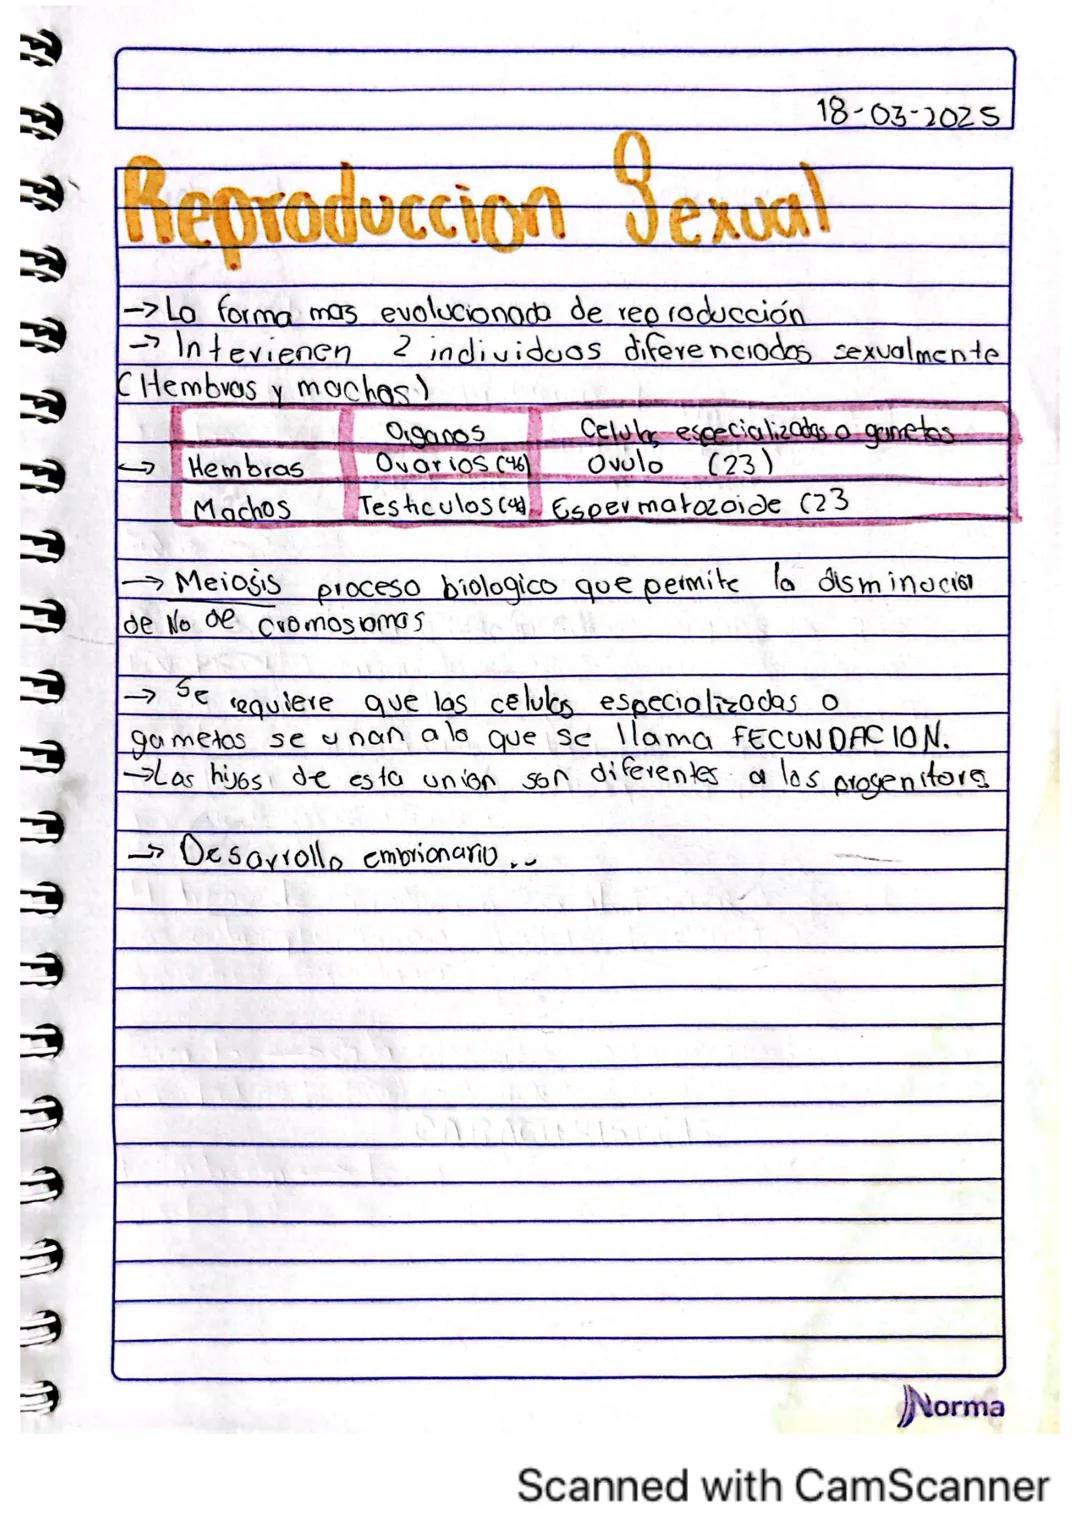 18-03-2025
Reproduccion Sexual
→ La forma mas evolucionada de reproducción
→ Intevienen 2 individuos diferenciados sexualmente
(Hembras y machos)
Organos Celulas especializadas o gametos
→ Hembras Ovarios (46) Ovulo (23)
Machos Testiculos (46) Espermatozoide (23
→ Meiosis proceso biologico que permite la disminucion
de No de cromosomas
→ Se requiere que las celulas especializadas o
gametos se unan a lo que se llama FECUNDACION.
→ Los hijos de esta union son diferentes a los progenitores
→ Desarrollo embrionario...
Norma
Scanned with CamScanner